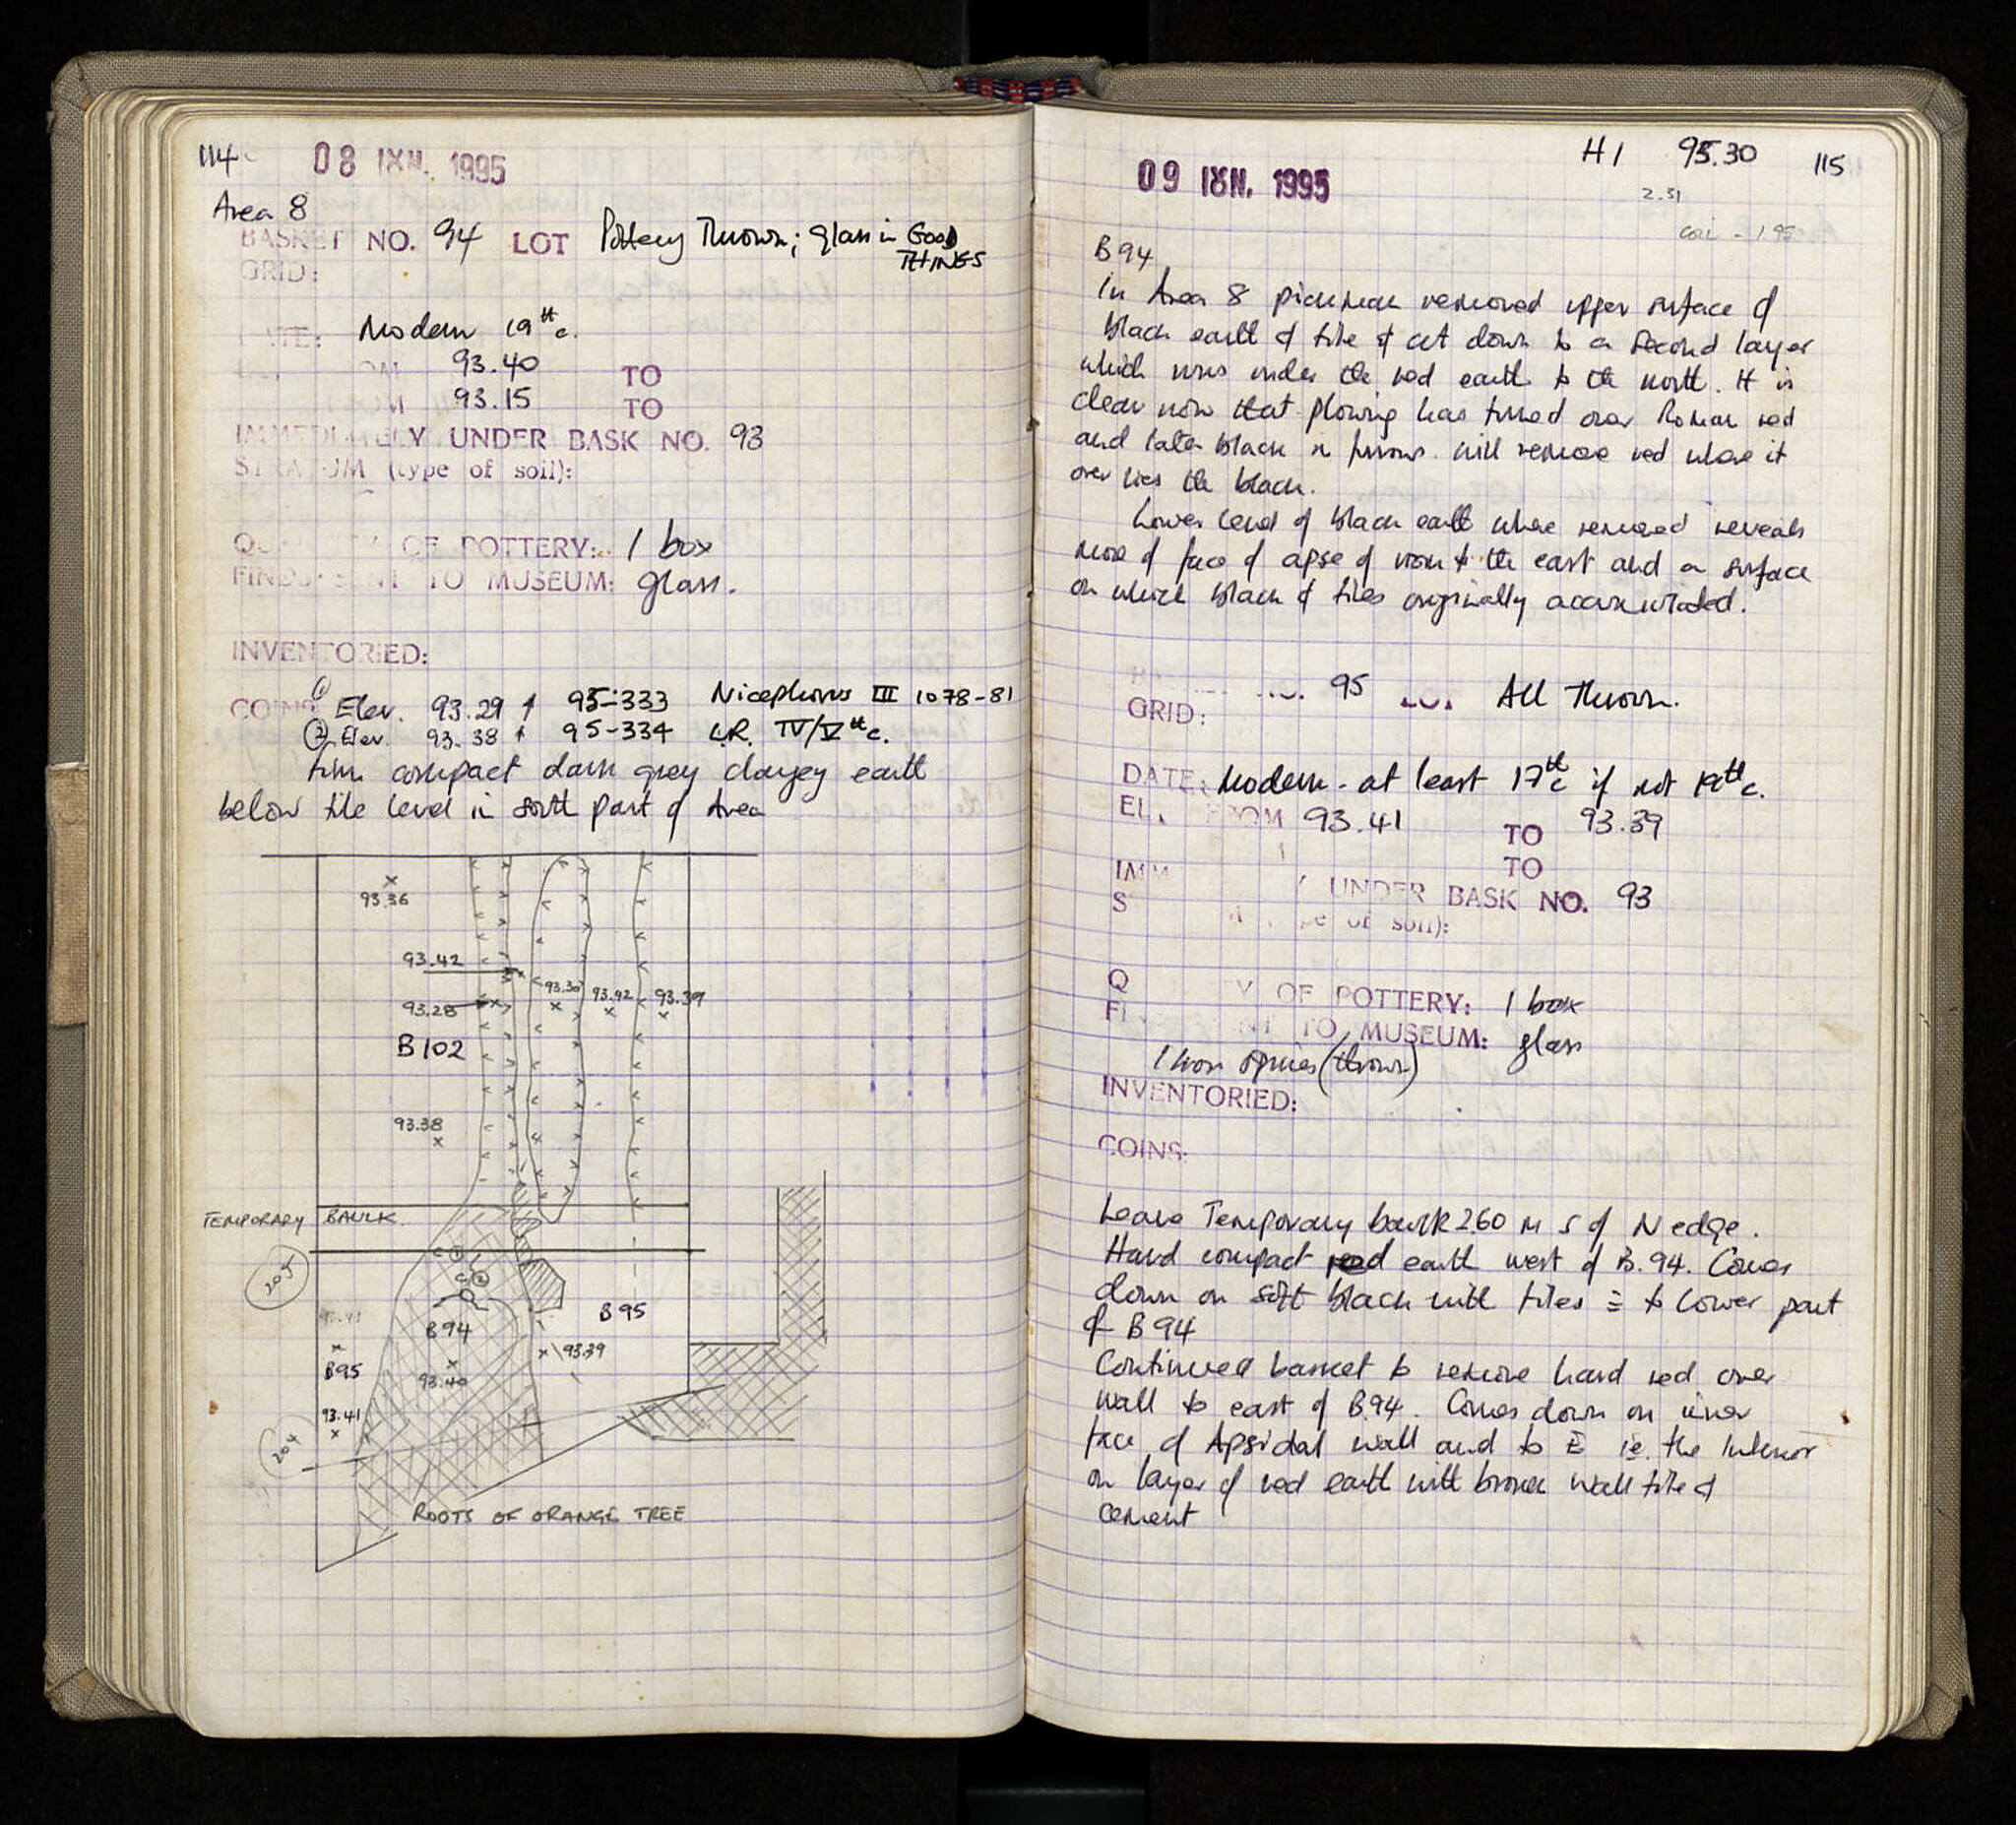 114
08 ΙΧΝ. 1995
Area 8
BASKET NO. 94 LOT Pottery Thrown; glass in GOOD
THINGS
GRID:
DATE: Modern 19th c.
93.40 TO
93.15 TO
IMMEDIATELY UNDER BASK NO. 93
STRATUM (type of soil):
QUANTITY OF POTTERY: 1 box
FINDS SENT TO MUSEUM: glass.
INVENTORIED:
COINS ① Elev. 93.29 95-333 Nicephorus III 1078-81
② Elev. 93.38 95-334 L.R. IV/Vth c.
compact dark grey clayey earth
below tile level in south part of Area
93.36
93.42
93.28
93.42 93.39
B102
93.38
TEMPORARY BAULK
205
C ①
C ②
B94
B95
93.39
B95
93.40
93.41
204
ROOTS OF ORANGE TREE
H1 95.30 115
09 ΙΟΝ. 1995
2.31
B94
In Area 8 pickman removed upper surface of
black earth & tile & cut down to a second layer
which runs under the red earth to the north. It is
clear now that plowing has turned over Roman red
and later black in furrows. will remove red where it
over lies the black.
Lower level of black earth where removed reveals
more of face of apse of room to the east and a surface
on which black & tiles originally accumulated.
95 LOT All Thrown.
GRID:
DATE: Modern - at least 17th c if not 19th c.
EL. FROM 93.41 TO 93.39
TO
UNDER BASK NO. 93
of soil):
OF POTTERY: 1 box
TO MUSEUM: glass
1 iron (thrown)
INVENTORIED:
COINS:
Leave Temporary baulk 2.60 m S of N edge.
Hard compact red earth west of B.94. Comes
down on soft black with tiles = to lower part
of B94
Continued basket to remove hard red over
wall to east of B.94. Comes down on inner
face of Apsidal wall and to E ie. the Interior
on layer of red earth with broken wall tile &
cement